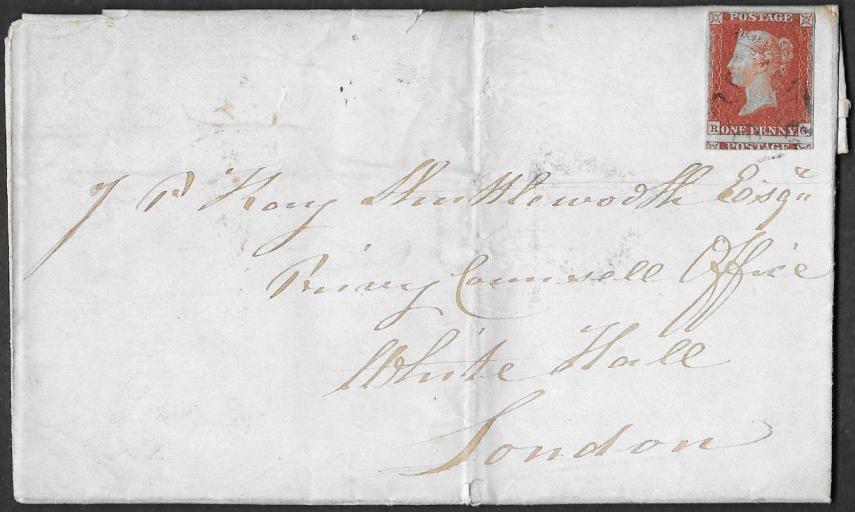 POSTAGE
R ONE PENNY G
POSTAGE
J P Kay Shuttleworth Esqr
Privy Counsell Office
White Hall
London